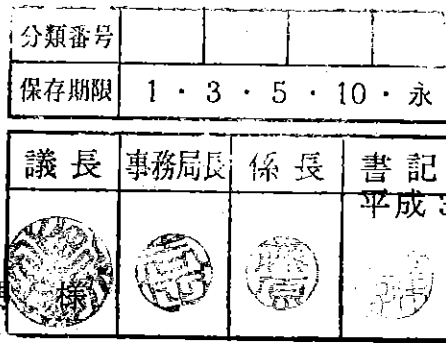 分類番号
保存期限 1・3・5・10・永
議長 事務局長 係長 書記
平成3
様